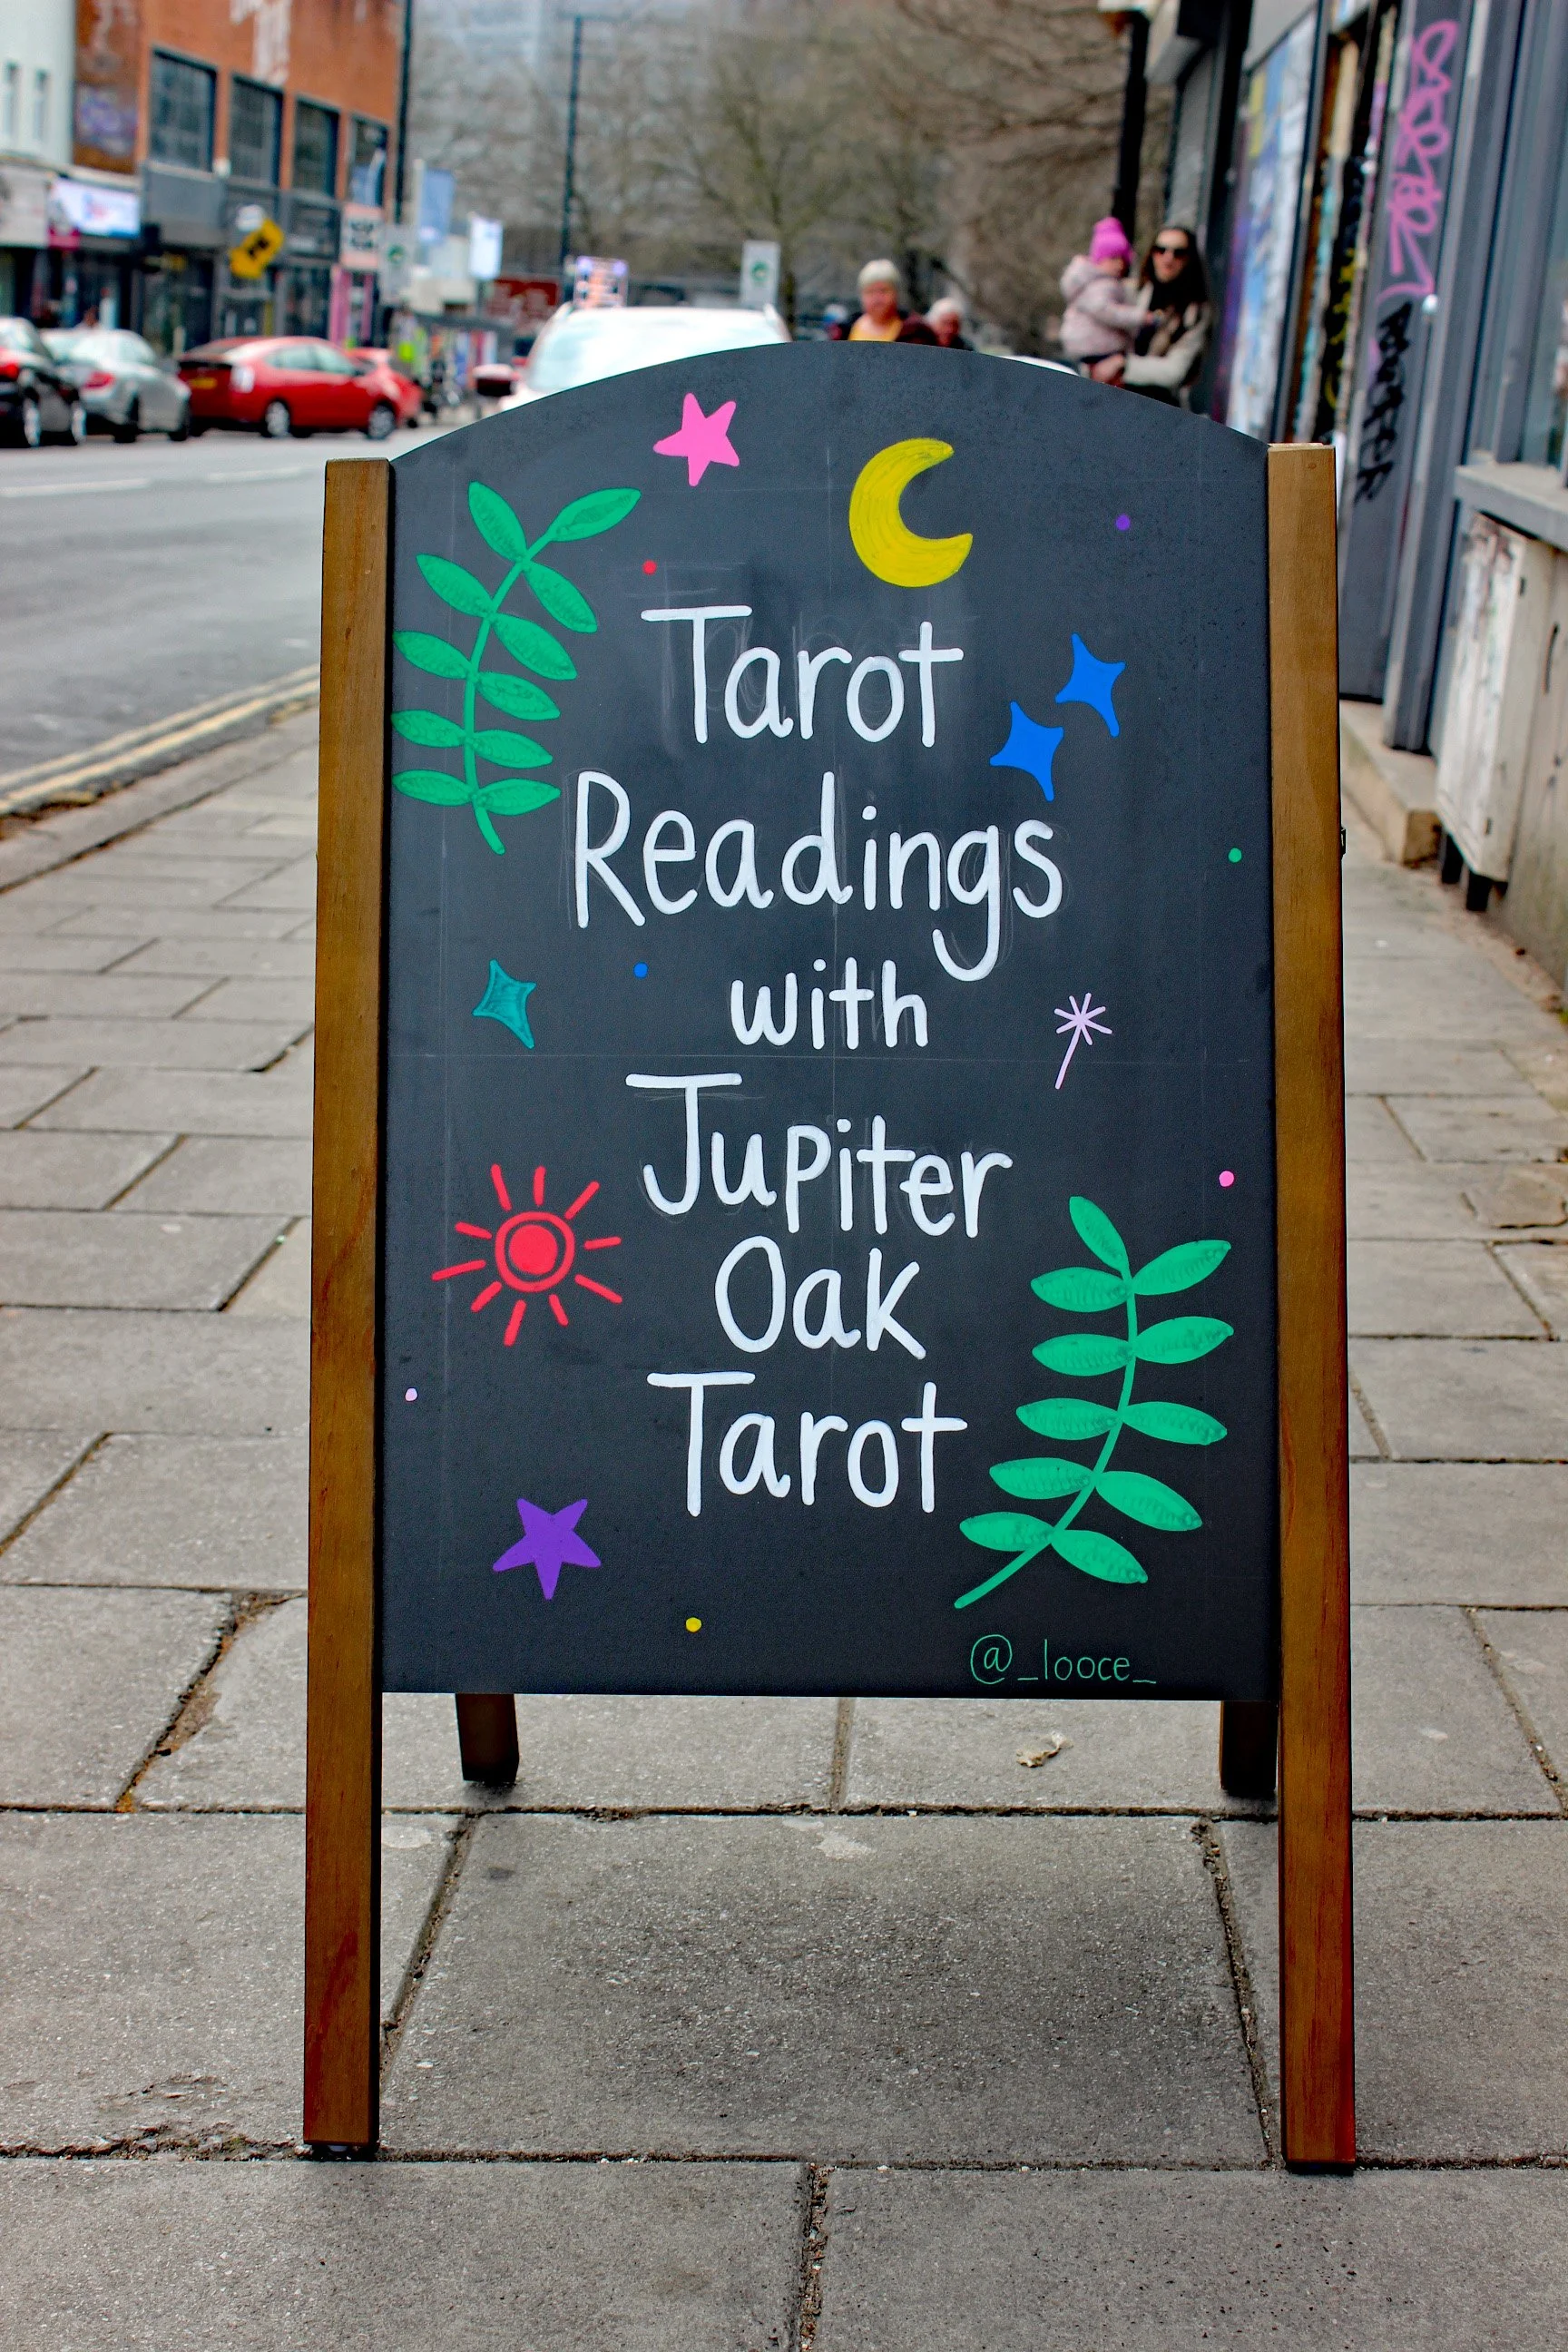 Tarot
Readings
with
Jupiter
Oak
Tarot
@_looce_